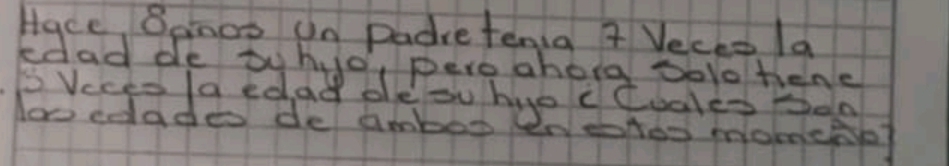 Hace 8 años un padre tenia 7 Veces la
edad de su hijo, pero ahora solo tiene
3 Veces la edad de su hijo ¿Cuales son
las edades de ambos en estos momentos?